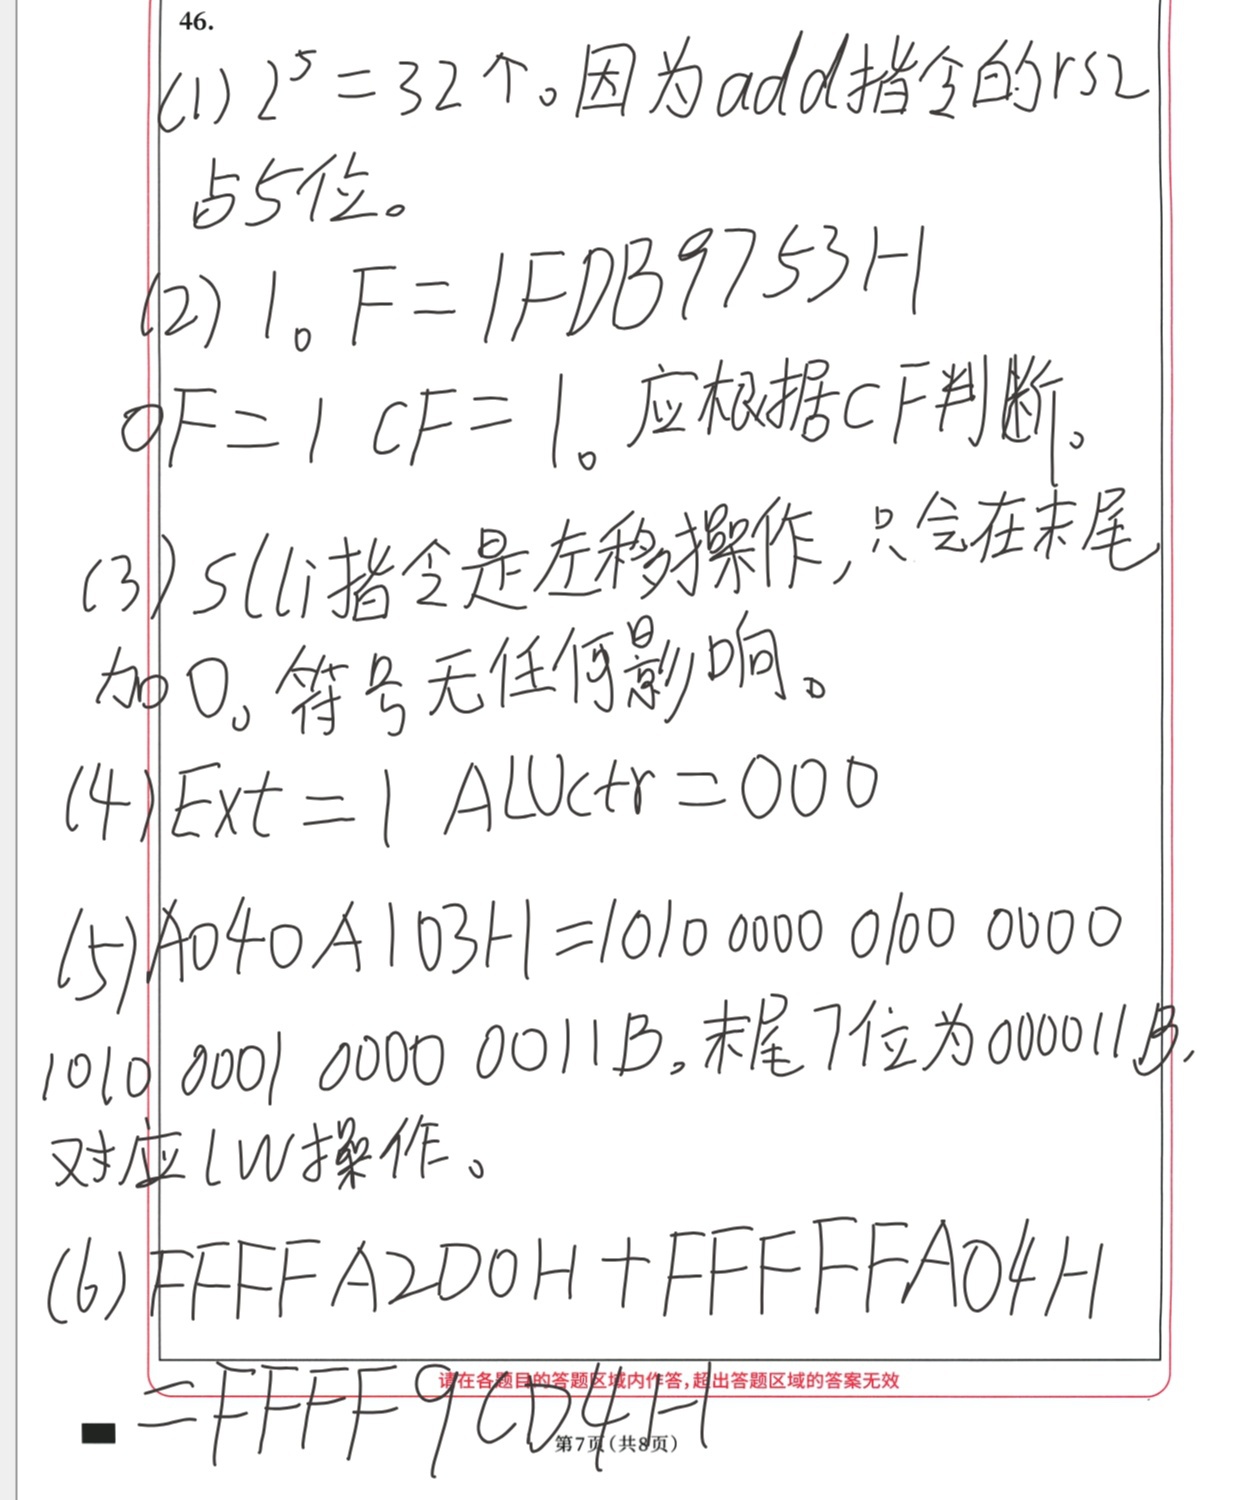 46.
(1) 2⁵=32个。因为add指令的rs2
占5位。
(2) 1。F=1FDB9753H
OF=1 CF=1。应根据CF判断。
(3) slli指令是左移操作,只会在末尾
加0。符号无任何影响。
(4) Ext=1 ALUctr=000
(5) A040A103H=1010 0000 0100 0000
1010 0001 0000 0011B。末尾7位为000011B,
对应LW操作。
(6) FFFFA2D0H+FFFFFFA04H
=FFFF9CD4H
请在各题目的答题区域内作答,超出答题区域的答案无效
第7页(共8页)